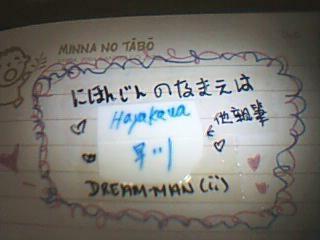 MINNA NO TĀBŌ
にほんじんのなまえは
Hayakawa
他親筆
早川
DREAM-MAN (ii)